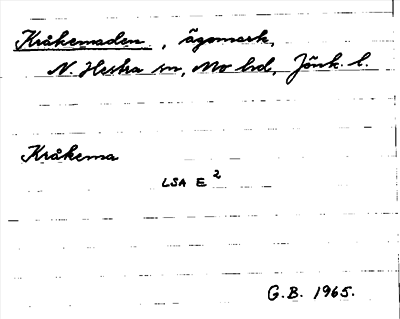 Kråkemaden, ägomark,
N. Hestra sn, Mo hd, Jönk. l.
Kråkema
LSA E 2
G.B. 1965.